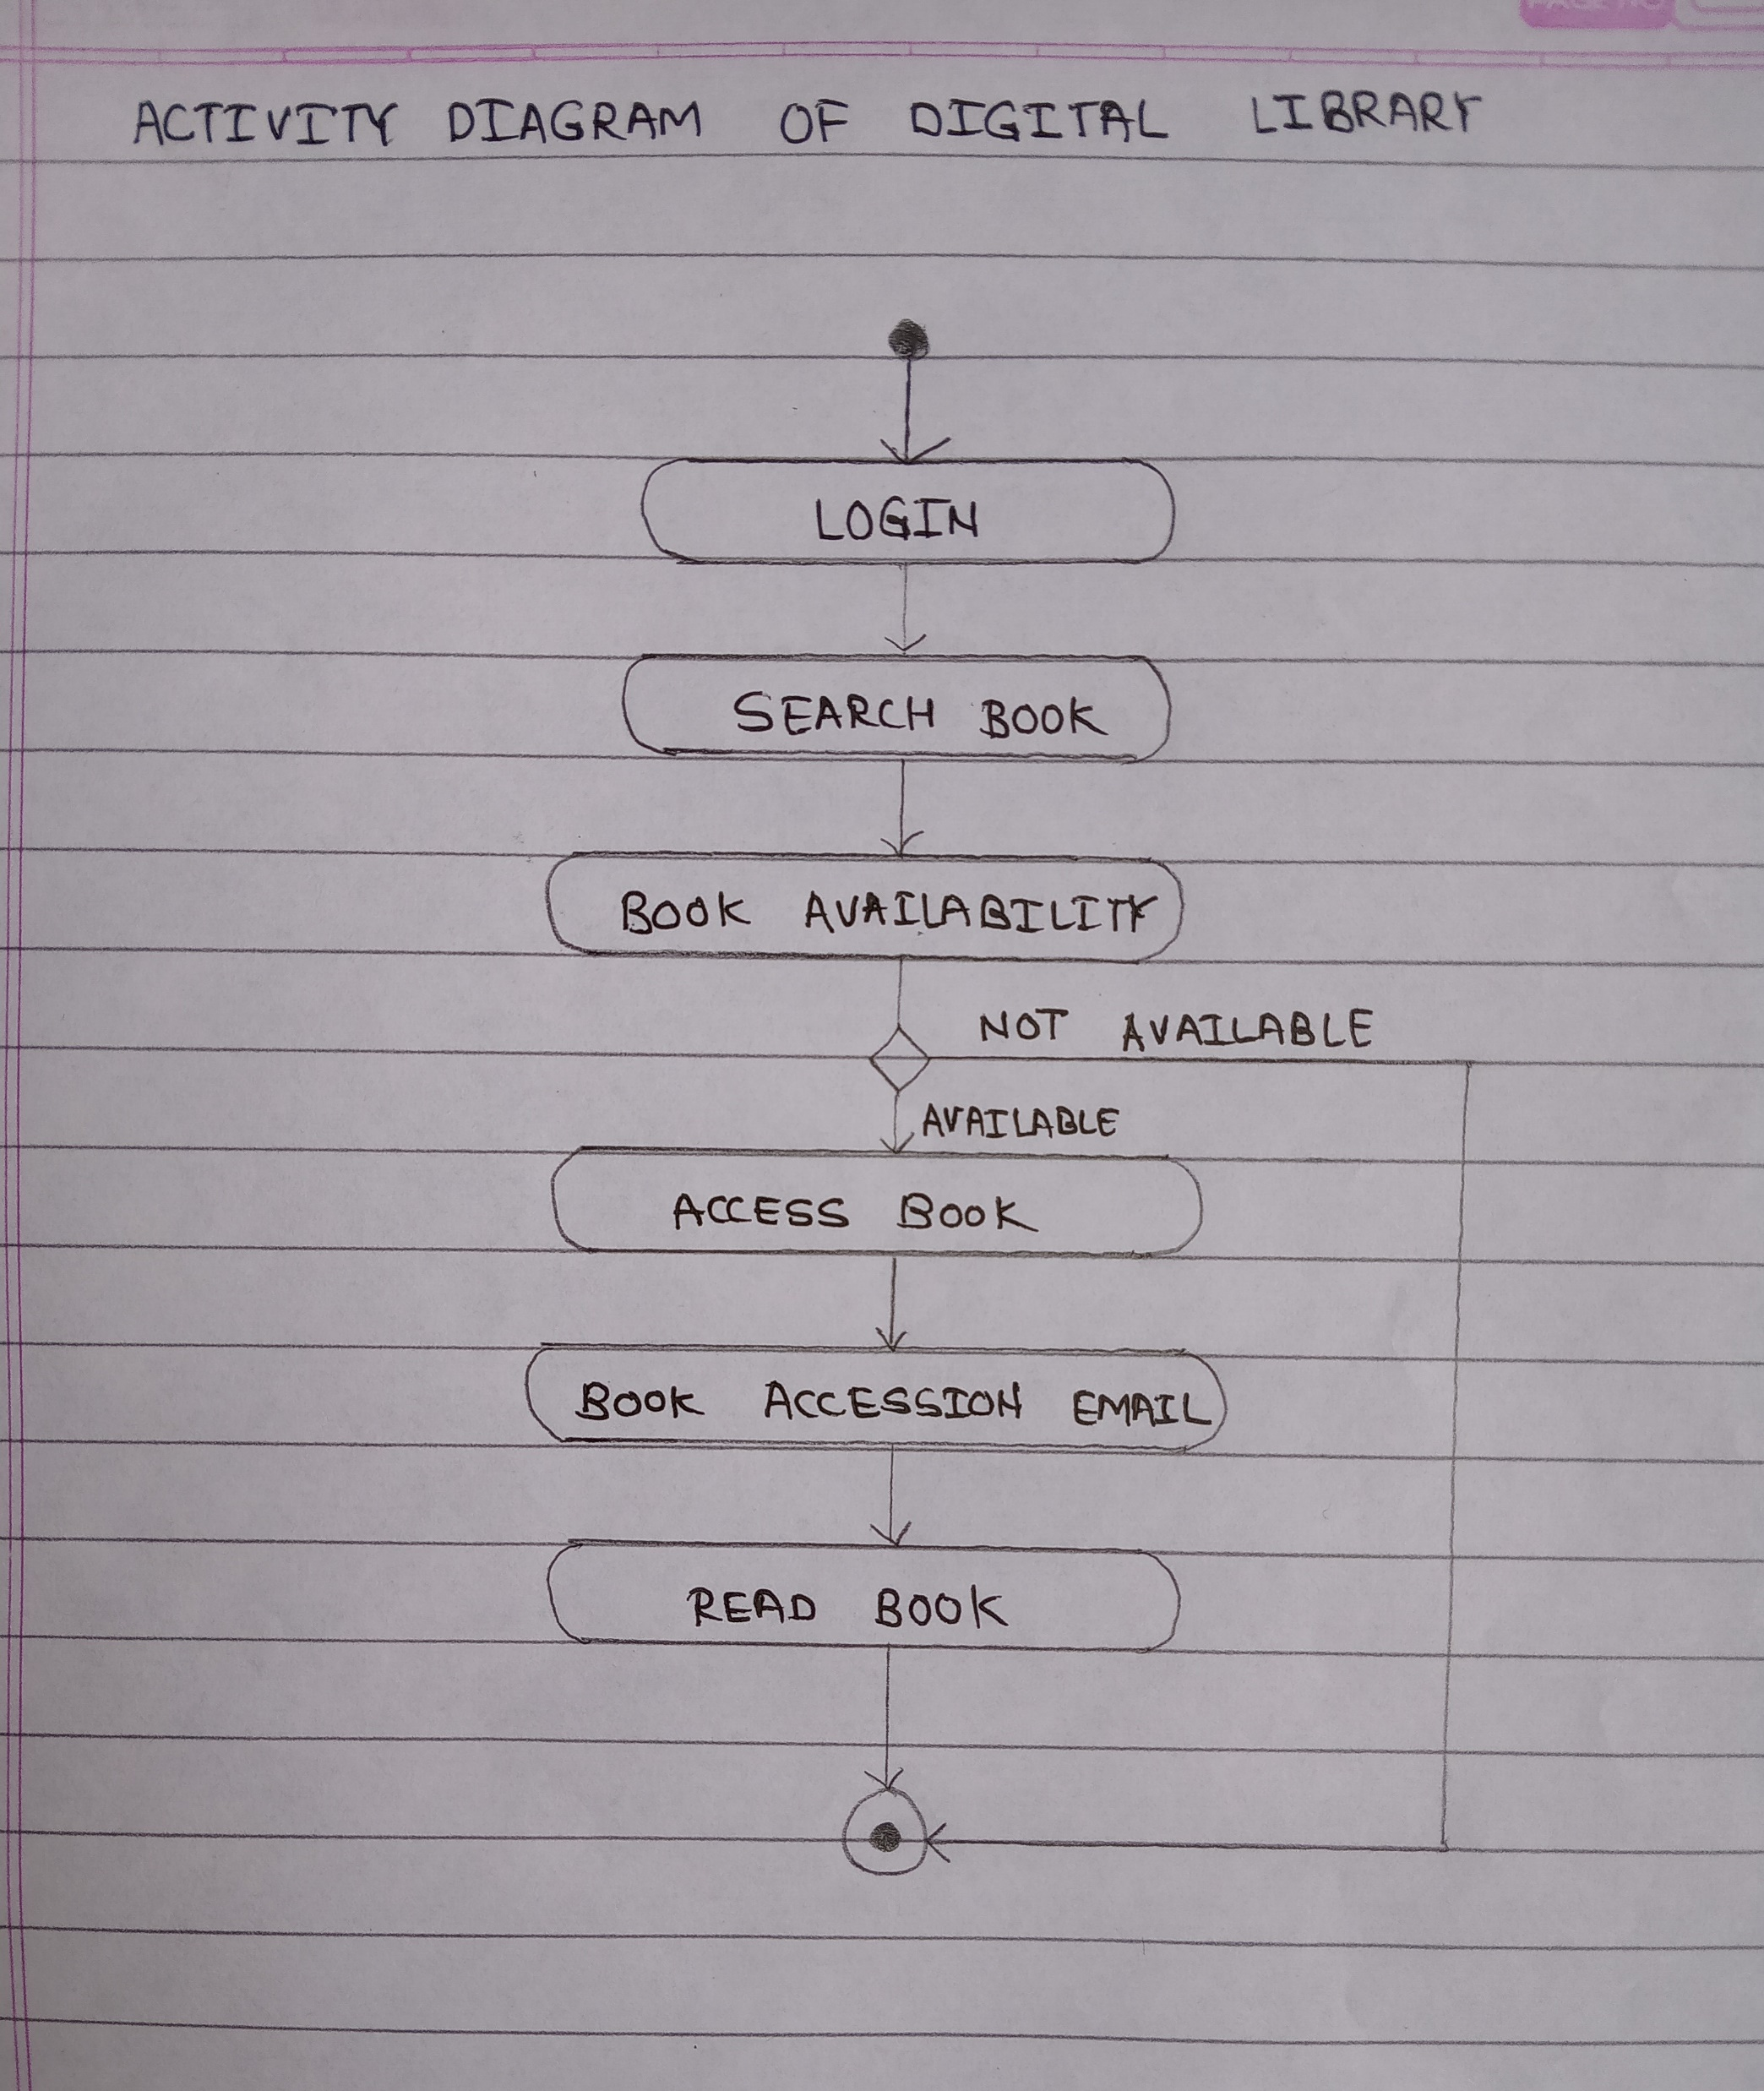 PAGE NO
ACTIVITY DIAGRAM OF DIGITAL LIBRARY
LOGIN
SEARCH BOOK
BOOK AVAILABILITY
NOT AVAILABLE
AVAILABLE
ACCESS BOOK
BOOK ACCESSION EMAIL
READ BOOK